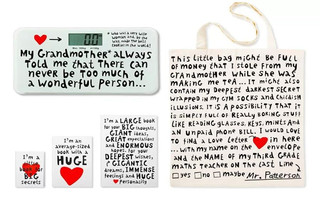 My Grandmother always
Told me that There can
never be Too much of
a wonderful Person...
I'm a
little
book
for
BIG
secrets
I'm an
average-sized
book with a
HUGE
I'm a LARGE book
for your BIG thoughts,
GIANT ideas,
GREAT expectations
and ENORMOUS
hopes. for your
DEEPEST wishes,
GIGANTIC
dreams, IMMENSE
feelings and HUGE
Personality
This little bag might Be FULL
of money that I stole from my
grandmother while she was
making me Tea... it might also
contain my Deepest darkest secret
wrapped in my gym socks and childish
illusions. it is a possibility that it
is simply full of really boring stuff
like reading glasses, keys, mints and
an unpaid phone bill. I would Love
to find a Love Letter in here
... with my name on the envelope
and the name of my third grade
maths teacher on the last line.
yes no maybe Mr. Patterson